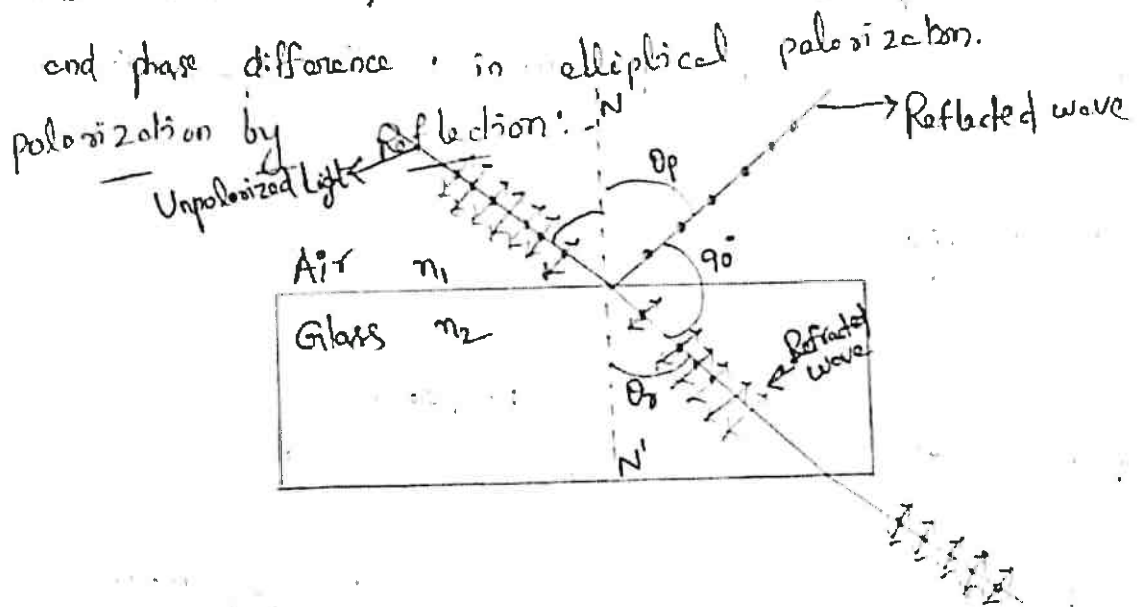 and phase difference. in elliptical polarization.
polarization by Reflection:
N
Reflected wave
Unpolarized Light
θp
90°
Air n₁
Glass n₂
Refracted wave
θr
N'